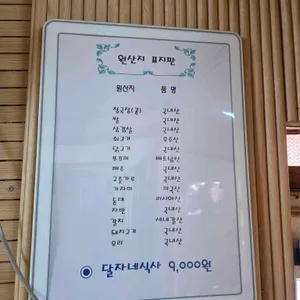 원산지 표지판
원산지 품 명
청국장(콩) 국내산
쌀 국내산
삼겹살 국내산
쇠고기 호주산
닭고기 국내산
베트남산
배추 국내산
고춧가루 국내산
가자미 미국산
동태 러시아산
국내산
갈치 세네갈산
돼지고기 국내산
오리 국내산
달자네식사 9,000원